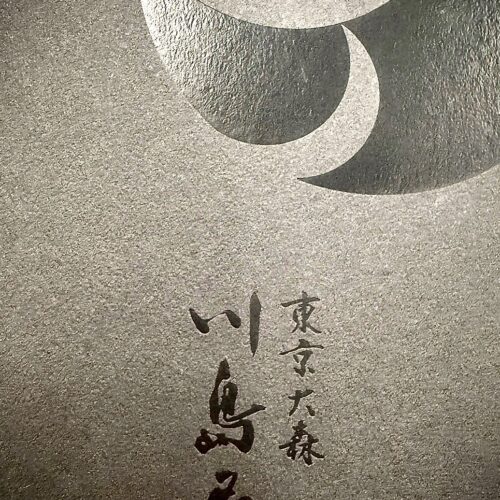 東京大森
川島